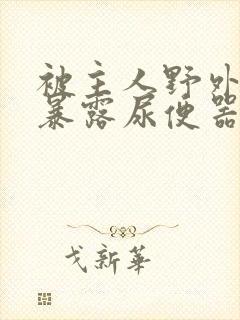 被主人野外
暴露尿便器
戈新華